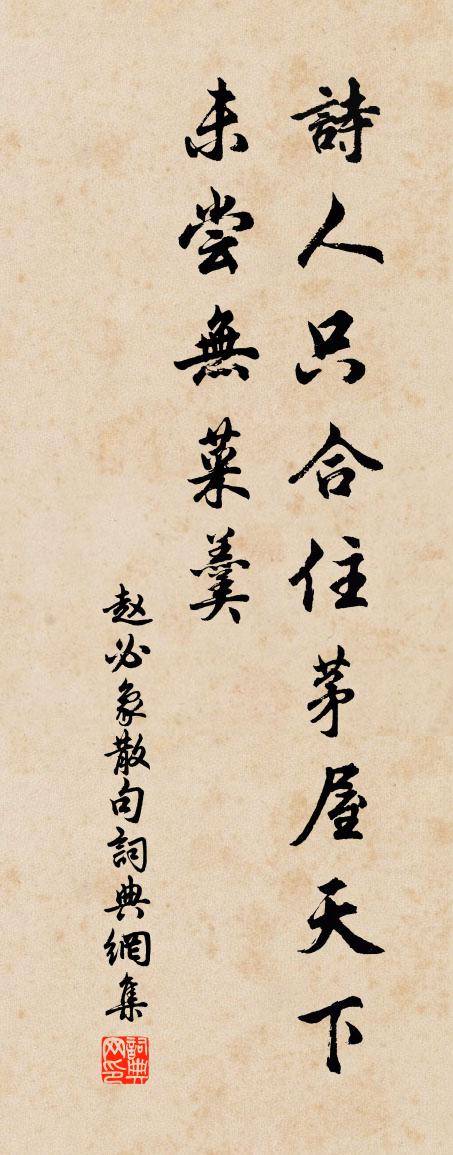 詩人只合住茅屋天下
未尝無菜羹
赵必象散句詞典網集
詞典网印